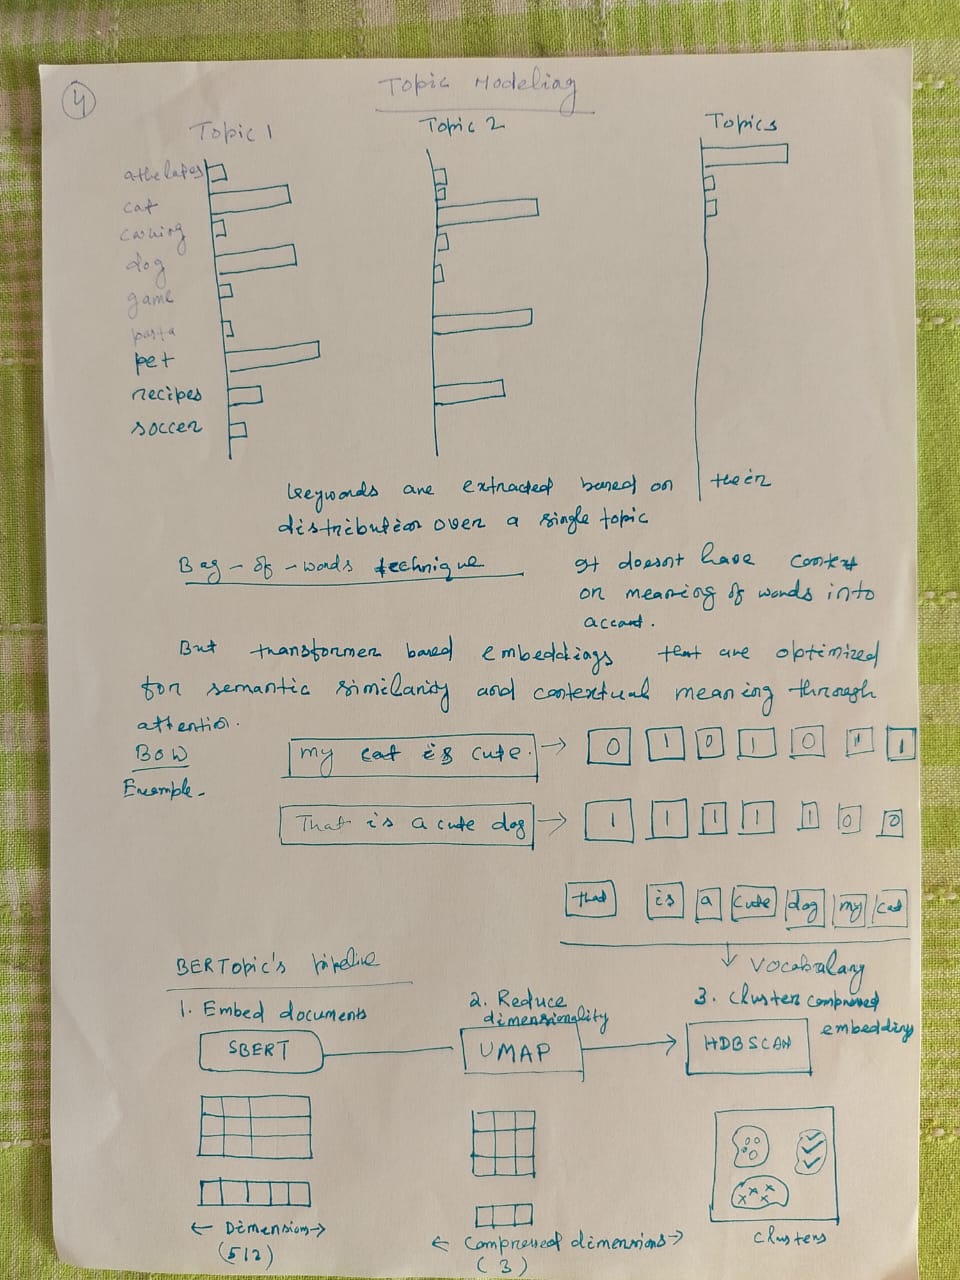 4
Topic Modeling
Topic 1
Topic 2
Topics
cat
dog
game
pasta
pet
recipes
soccer
keywords are extracted based on their
distribution over a single topic
Bag-of-words technique
It doesnt have context
or meaning of words into
account.
But transformer based embeddings that are optimized
for semantic similarity and contextual meaning through
attention.
BOW
Example-
my cat is cute.
0 1 0 1 0 1 1
That is a cute dog
1 1 1 1 1 0 0
that is a cute dog my cat
vocabulary
BERTopic's pipeline
1. Embed documents
2. Reduce
dimensionality
3. cluster compressed
embedding
SBERT
UMAP
HDBSCAN
← Dimension →
(512)
← Compressed dimensions →
(3)
clusters